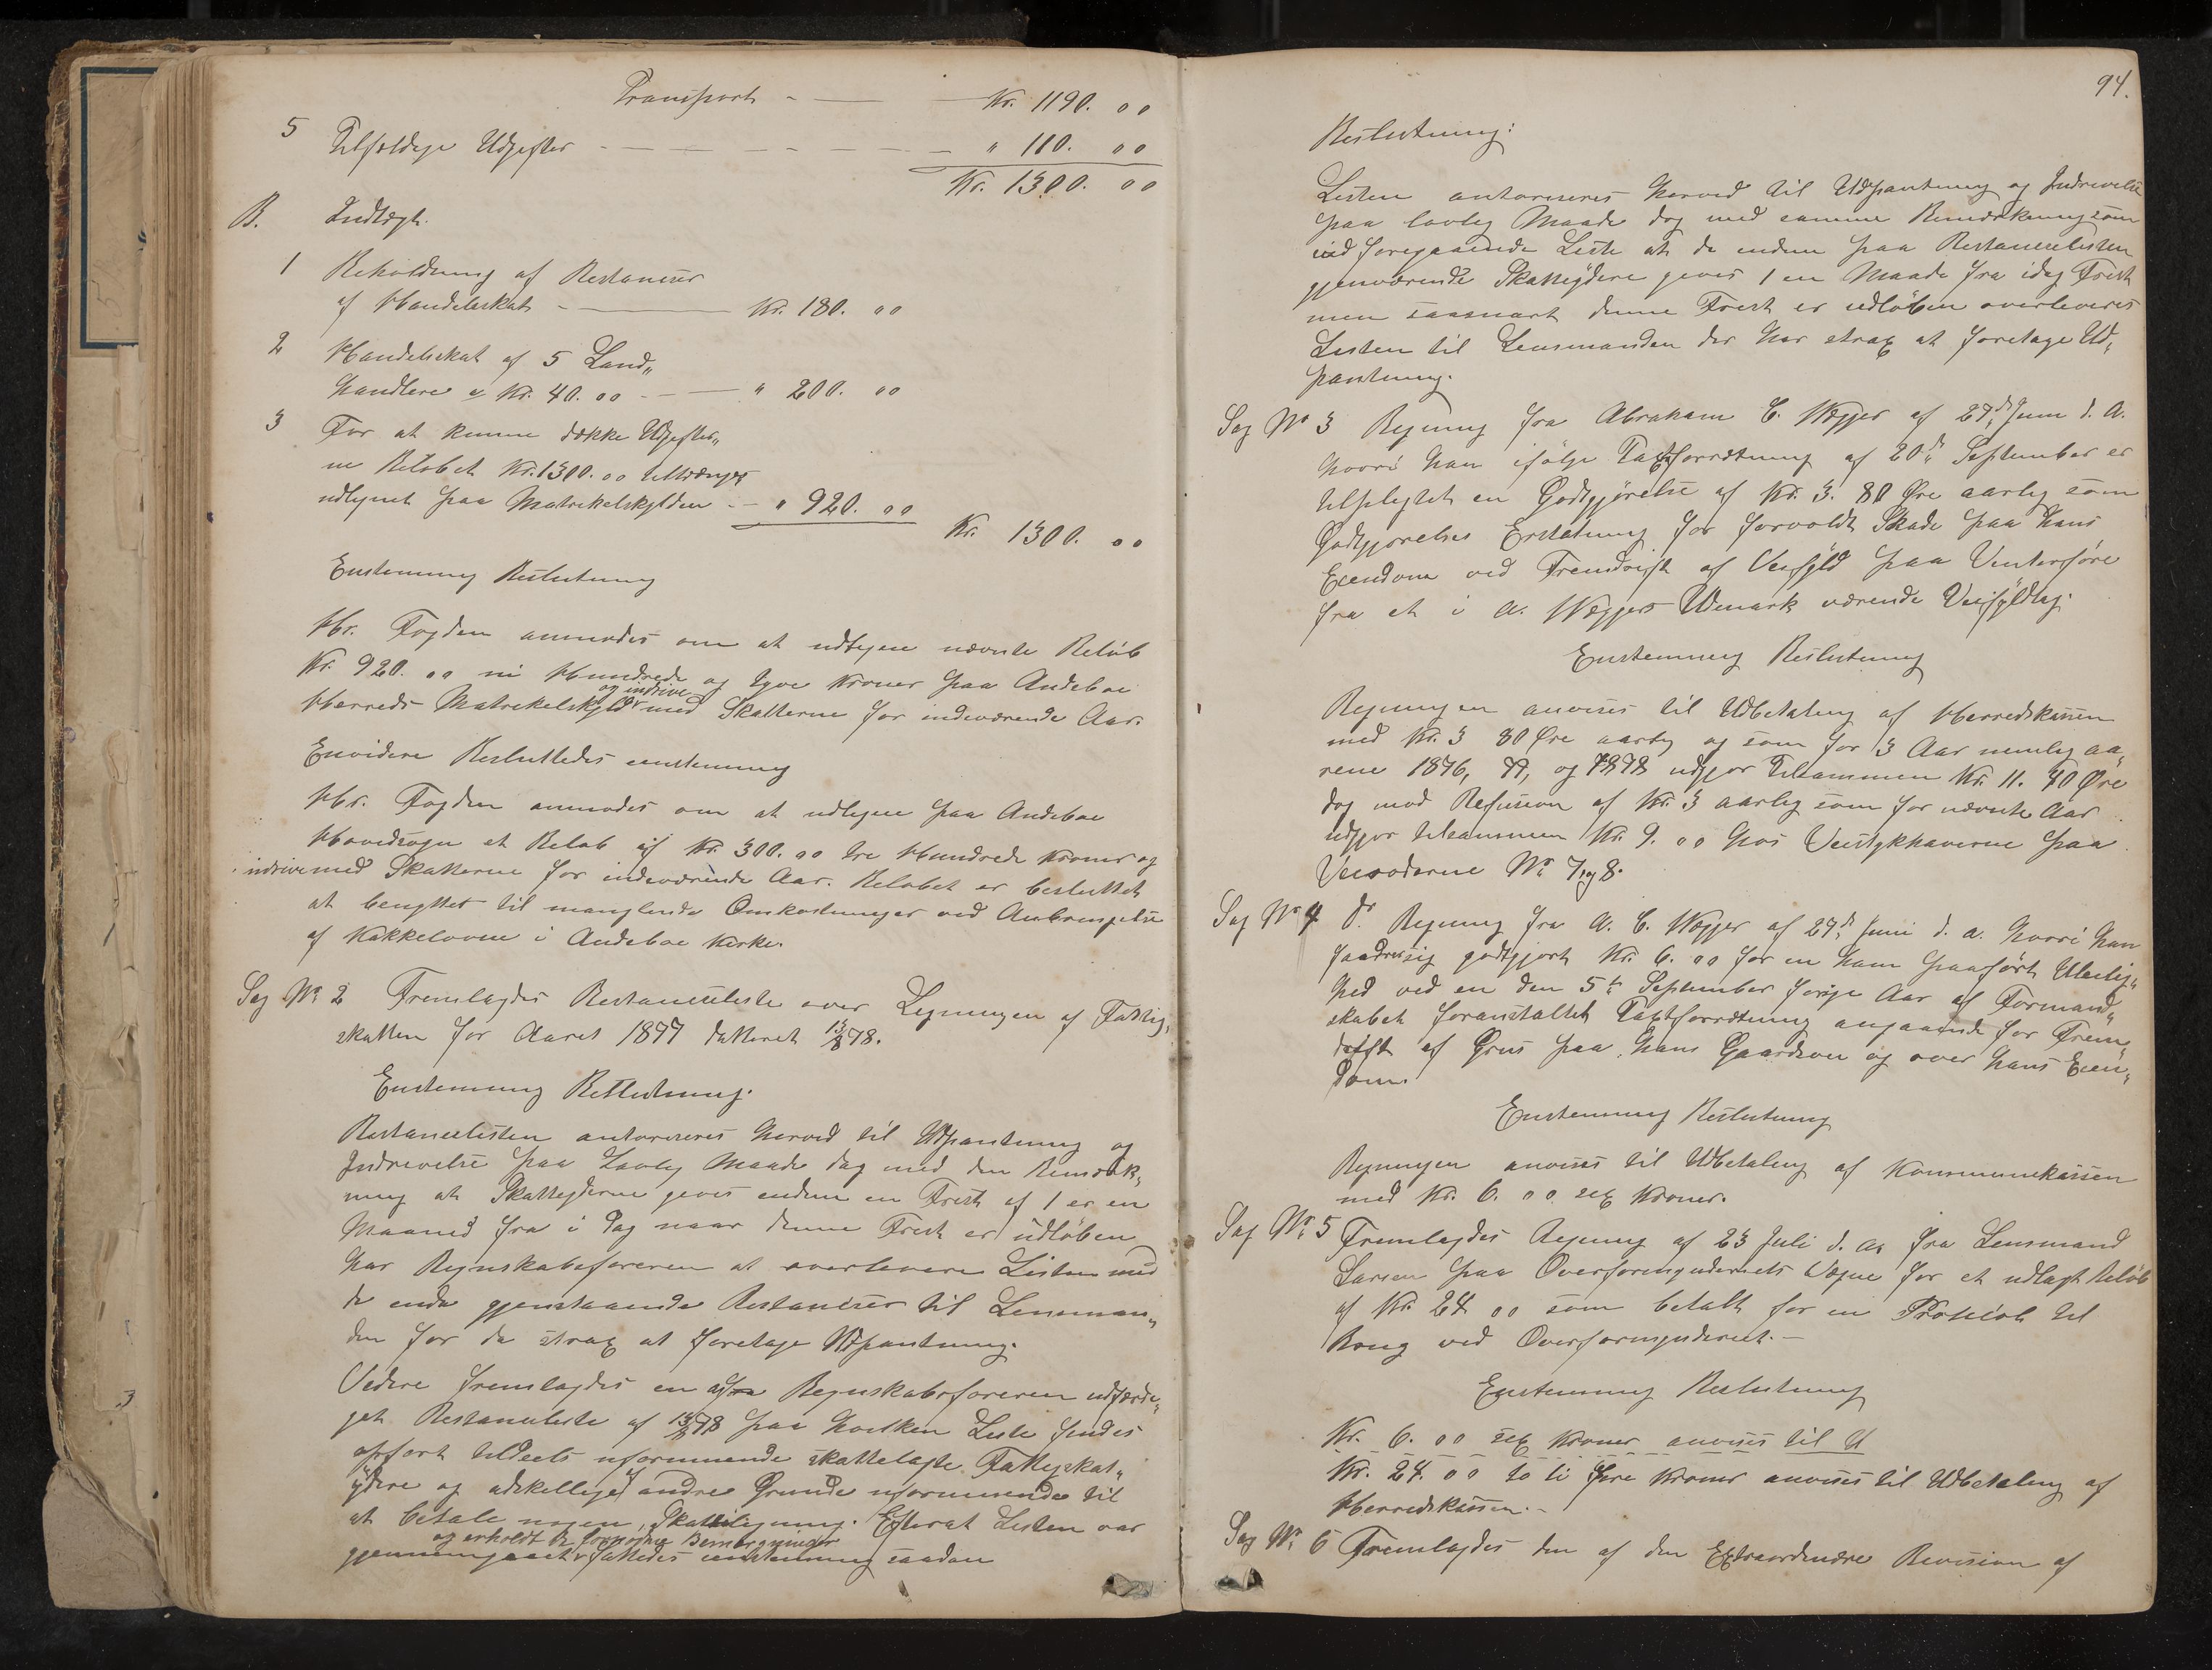 Transport - — Kr. 1190. 00
5 Tilfældige Udgifter - - - - - - - " 110. 00
Kr. 1300. 00
B. Indtægt.
1 Beholdning af Restancer
af Handelsskat - — Kr. 180. 00
2 Handelsskat af 5 Land„
handlere a Kr. 40. 00 - - — " 200. 00
3 For at kunne dække Udgifter„
ne Beløbet Kr. 1300. 00 tiltrænges
udlignet paa Matrikelskylden - - " 920. 00
Kr. 1300. 00
Enstemmig Beslutning
Hr. Fogden anmodes om at udligne nævnte Beløb
Kr. 920. 00 ni Hundrede og tyve Kroner paa Andebo
og indrive
Herreds Matrikelskyld med Skatterne for indeværende Aar.
Envidere Besluttedes enstemmig
Hr. Fogden anmodes om at udligne paa Andebo
Hovedsogn et Beløb af Kr. 300. 00 tre Hundrede Kroner og
indrive med Skatterne for indeværende Aar. Beløbet er besluttet
at benyttes til manglende Omkostninger ved Anbringelse
af Kakkelovne i Andebo Kirke.
Sag No 2 Fremlagdes Restanceliste over Ligningen af Fattig„
skatten for Aaret 1877 datteret 13/8 78.
Enstemmig Beslutning.
Restancelisten autoriseres herved til Udpantning og
Inddrivelse paa Lovlig Maade dog med den Bemærk„
ning at Skatteyderne gives endnu en Frist af 1 er en
Maaned fra i Dag naar denne Frist er udløben
har Regnskabsføreren at overlevere Listen med
de enda gjenstaaende Restancer til Lensman„
den for da strax at foretage Udpantning.
Videre fremlagdes en af Regnskabsføreren udfærdi„
get Restanceliste af 13/8 78 paa hvilken Liste findes
opført tildeels uformuende skattelagte Fattigskat„
ydere og adskellige af andre Grunde uformuende til
at betale nogen Skatteligning. Efterat Listen var
og erholdt de fornødne Bemærgninger
gjennemgaaet fattedes enstemmig saadan
94.
Beslutning:
Listen autoriseres herved til Udpantning og Indrivelse
paa lovlig Maade dog med samme Bemærkning som
ved foregaaende Liste at de endnu paa Restancelisten
gjenværende Skatteydere gives 1 en Maade fra idag Frist
men saasnart denne Frist er udløben overleveres
Listen til Lensmanden der har strax at foretage Ud„
pantning.
Sag No 3 Regning fra Abraham C. Wegger af 27de Juni d. A.
hvori han ifølge Taxtforrætning af 20de September er
tilpligtet en Godtgjørelse af Kr. 3. 80 Øre aarlig som
Godtgjørelses Erstatning for forvoldt Skade paa hans
Eiendom ved Fremdrift af Veifyld paa Vinterføre
fra et i A. Weggers Udmark værende Veifyldtag.
Enstemmig Beslutning
Regningen anvises til Udbetaling af Herredskassen
med Kr. 3 80 Øre aarlig og som for 3 Aar nemlig Aa„
rene 1876, 77, og 1878 udgjør tilsammen Kr. 11. 40 Øre
dog mod Refusion af Kr. 3 aarlig som for nævnte Aar
udgjør tilsammen Kr. 9. 00 hos Veistykkhaverne paa
Veiroderne No 7 og 8.
Sag No 4 Do. Regning fra A. C. Wegger af 27de Juni d. a. hvori han
fordrer sig godtgjort Kr. 6. 00 for en ham paaført Uleilig„
hed ved en den 5te September forrige Aar af Formand„
skabet foranstaltet Taxtforrætning angaaende for Frem„
drift af Grus paa hans Gaardsvei og over hans Eien„
dom.
Enstemmig Beslutning
Regningen anvises til Udbetaling af Kommunekassen
med Kr. 6. 00 sex Kroner.
Sag No 5 Fremlagdes Regning af 23 Juli d. A. fra Lensmand
Larsen paa Overformynderiets Vegne for et udlagt Beløb
af Kr. 24. 00 som betalt for en Protokol til
Brug ved Overformynderiet. -
Enstemmig Beslutning
Kr. 6. 00 sex Kroner anvises til U
Kr. 24. 00 to ti fire Kroner anvises til Udbetaling af
Herredskassen. -
Sag No 6 Fremlagdes den af den Extraordinære Revision af